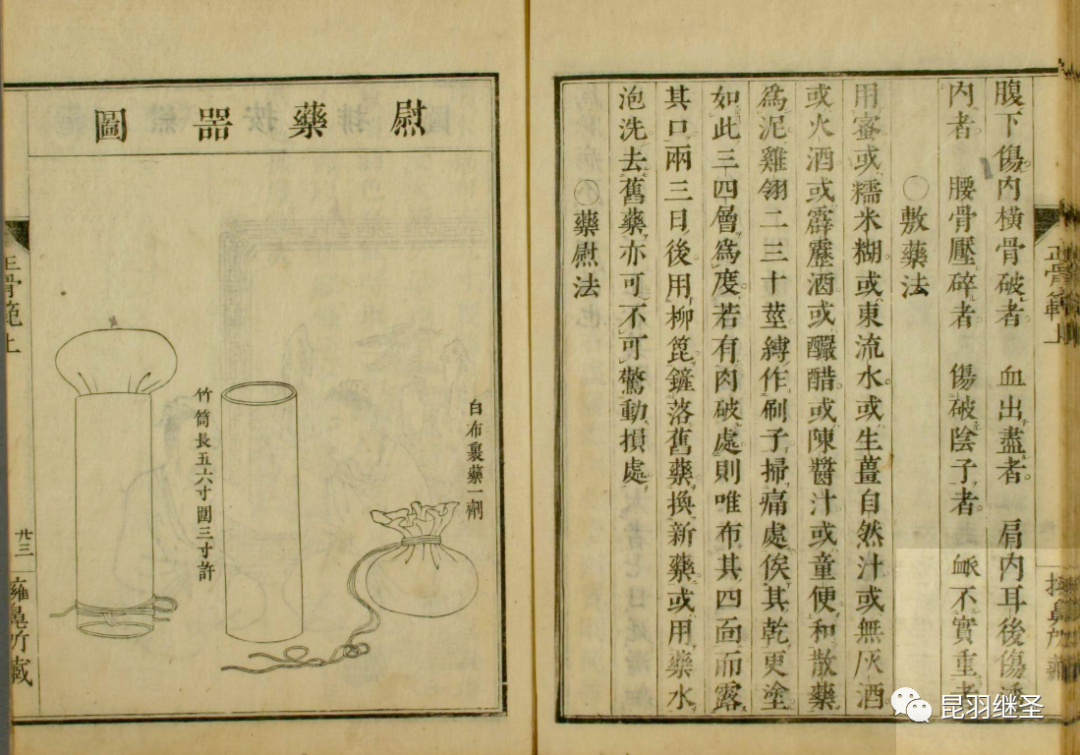 正骨範上
腹下傷内橫骨破者 血出盡者 肩内耳後傷透
内者 腰骨壓碎者 傷破陰子者 脈不實重者
〇敷藥法
用蜜或糯米糊或東流水或生薑自然汁或無灰酒
或火酒或霹靂酒或釅醋或陳醬汁或童便和散藥
爲泥雞翎二三十莖縛作刷子掃痛處俟其乾更塗
如此三四層爲度若有肉破處則唯布其四面而露
其口兩三日後用柳篦鏟落舊藥換新藥或用藥水
泡洗去舊藥亦可不可驚動損處
〇藥熨法
熨藥器圖
白布裹藥一劑
竹筒長五六寸圍三寸許
正骨範上
卄三
昆羽继圣